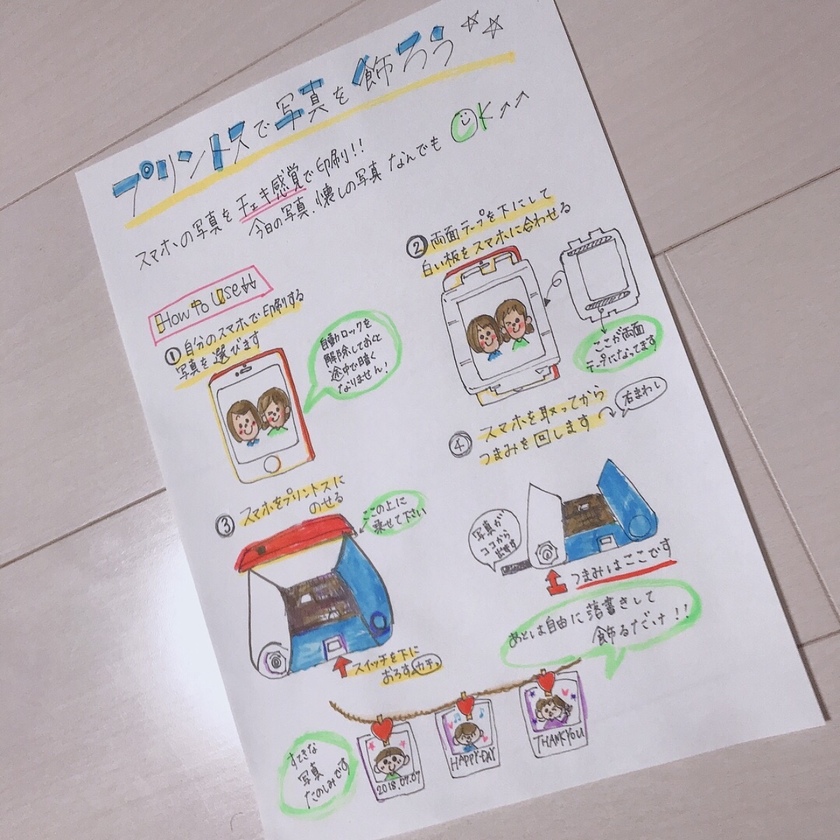 プリントスで写真を飾ろう
スマホの写真をチェキ感覚で印刷!!
今日の写真、懐しの写真 なんでも OK
How to use
① 自分のスマホで印刷する
写真を選びます
自動ロックを
解除しておくと
途中で暗く
なりません!
② 両面テープを下にして
白い板をスマホに合わせる
ここが両面
テープになってます
③ スマホをプリントスに
のせる
この上に
乗せて下さい
スイッチを下に
おろす カチッ
④ スマホを取ってから
つまみを回します
右まわし
写真が
ココから
出ます
つまみはここです
あとは自由に落書きして
飾るだけ!!
すてきな
写真
たのしみです
2018.07.07
HAPPY-DAY
THANKYOU